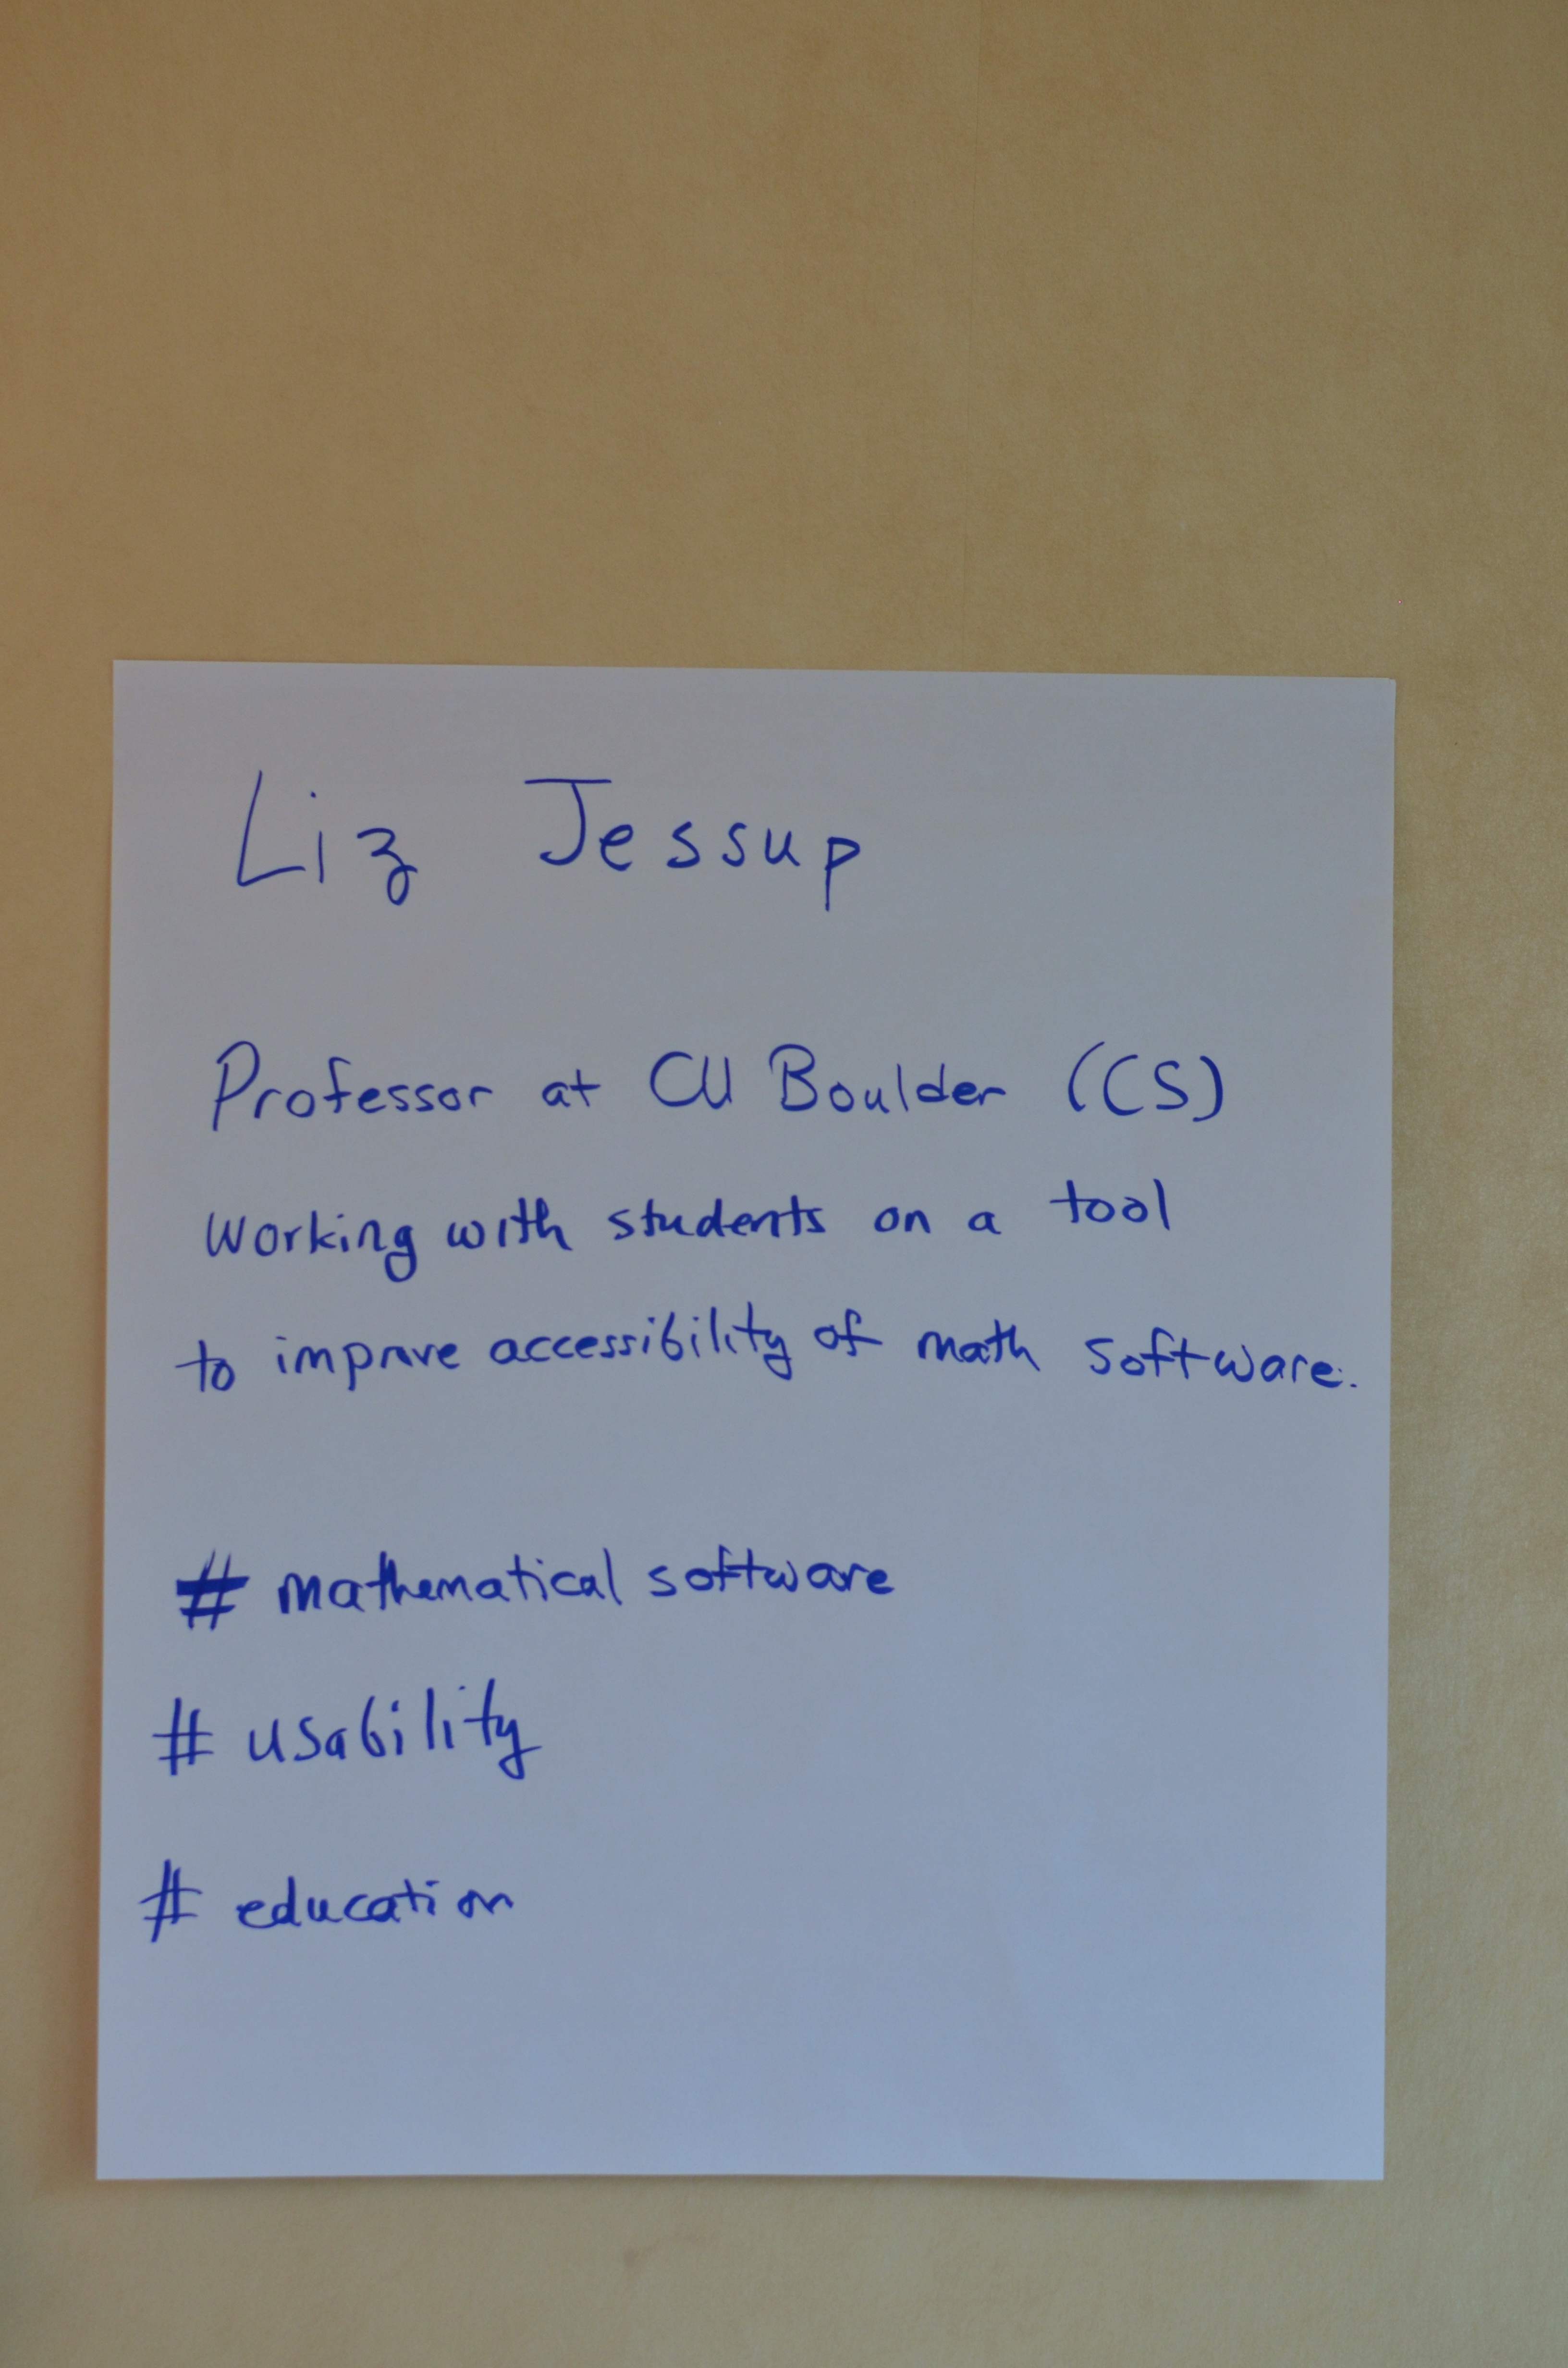 Liz Jessup
Professor at CU Boulder (CS)
Working with students on a tool
to improve accessibility of math software.
# mathematical software
# usability
# education